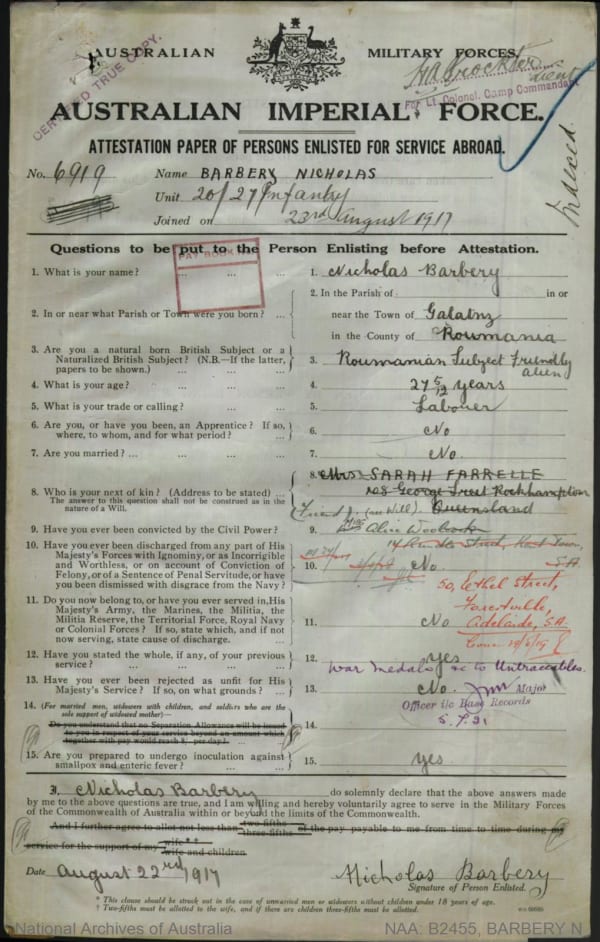 AUSTRALIAN MILITARY FORCES.
CERTIFIED TRUE COPY.
Lieut
For Lt. Colonel, Camp Commandant
AUSTRALIAN IMPERIAL FORCE.
ATTESTATION PAPER OF PERSONS ENLISTED FOR SERVICE ABROAD.
Indexed.
No. 6919 Name BARBERY NICHOLAS
Unit 20/27 Infantry
Joined on 23rd August 1917
Questions to be put to the Person Enlisting before Attestation.
PAY BOOK
1. What is your name? ... ... ... 1. Nicholas Barbery
2. In or near what Parish or Town were you born? ... 2. In the Parish of in or
near the Town of Galatnz
in the County of Roumania
3. Are you a natural born British Subject or a
Naturalized British Subject? (N.B.—If the latter,
papers to be shown.) ... ... 3. Roumanian Subject Friendly
alien
4. What is your age? ... ... ... 4. 27 5/12 years
5. What is your trade or calling? ... ... 5. Labouer
6. Are you, or have you been, an Apprentice? If so,
where, to whom, and for what period? ... 6. No
7. Are you married? ... ... ... 7. No.
8. Who is your next of kin? (Address to be stated) ...
The answer to this question shall not be construed as in the
nature of a Will.
8. Mrs SARAH FARRELLE
108 George Street Rockhampton
Queensland
Friend f. (no Will).
9. Have you ever been convicted by the Civil Power? 9.
Miss Alice
10. Have you ever been discharged from any part of His
Majesty's Forces with Ignominy, or as Incorrigible
and Worthless, or on account of Conviction of
Felony, or of a Sentence of Penal Servitude, or have
you been dismissed with disgrace from the Navy? 10. No.
Street,
S.A
50, Ethel Street,
Forestville,
Adelaide, S.A.
11. Do you now belong to, or have you ever served in, His
Majesty's Army, the Marines, the Militia, the
Militia Reserve, the Territorial Force, Royal Navy
or Colonial Forces? If so, state which, and if not
now serving, state cause of discharge. ... 11. No
12. Have you stated the whole, if any, of your previous
service? ... ... ... ... 12. yes
War medals &c to Untraceables.
13. Have you ever been rejected as unfit for His
Majesty's Service? If so, on what grounds? ... 13. No.
Major
Officer i/c Base Records
5.7.21
14. (For married men, widowers with children, and soldiers who are the
sole support of widowed mother)—
Do you understand that no Separation Allowance will be issued
to you in respect of your service beyond an amount which
together with pay would reach 8/- per day? ... 14.
15. Are you prepared to undergo inoculation against
smallpox and enteric fever? ... ... 15. yes.
I, Nicholas Barbery do solemnly declare that the above answers made
by me to the above questions are true, and I am willing and hereby voluntarily agree to serve in the Military Forces
of the Commonwealth of Australia within or beyond the limits of the Commonwealth.
And I further agree to allot not less than two-fifths three-fifths of the pay payable to me from time to time during my
service for the support of my wife** wife and children
Date August 22nd 1917 Nicholas Barbery
Signature of Person Enlisted.
* This clause should be struck out in the case of unmarried men or widowers without children under 18 years of age.
† Two-fifths must be allotted to the wife, and if there are children three-fifths must be allotted.
National Archives of Australia NAA: B2455, BARBERY N